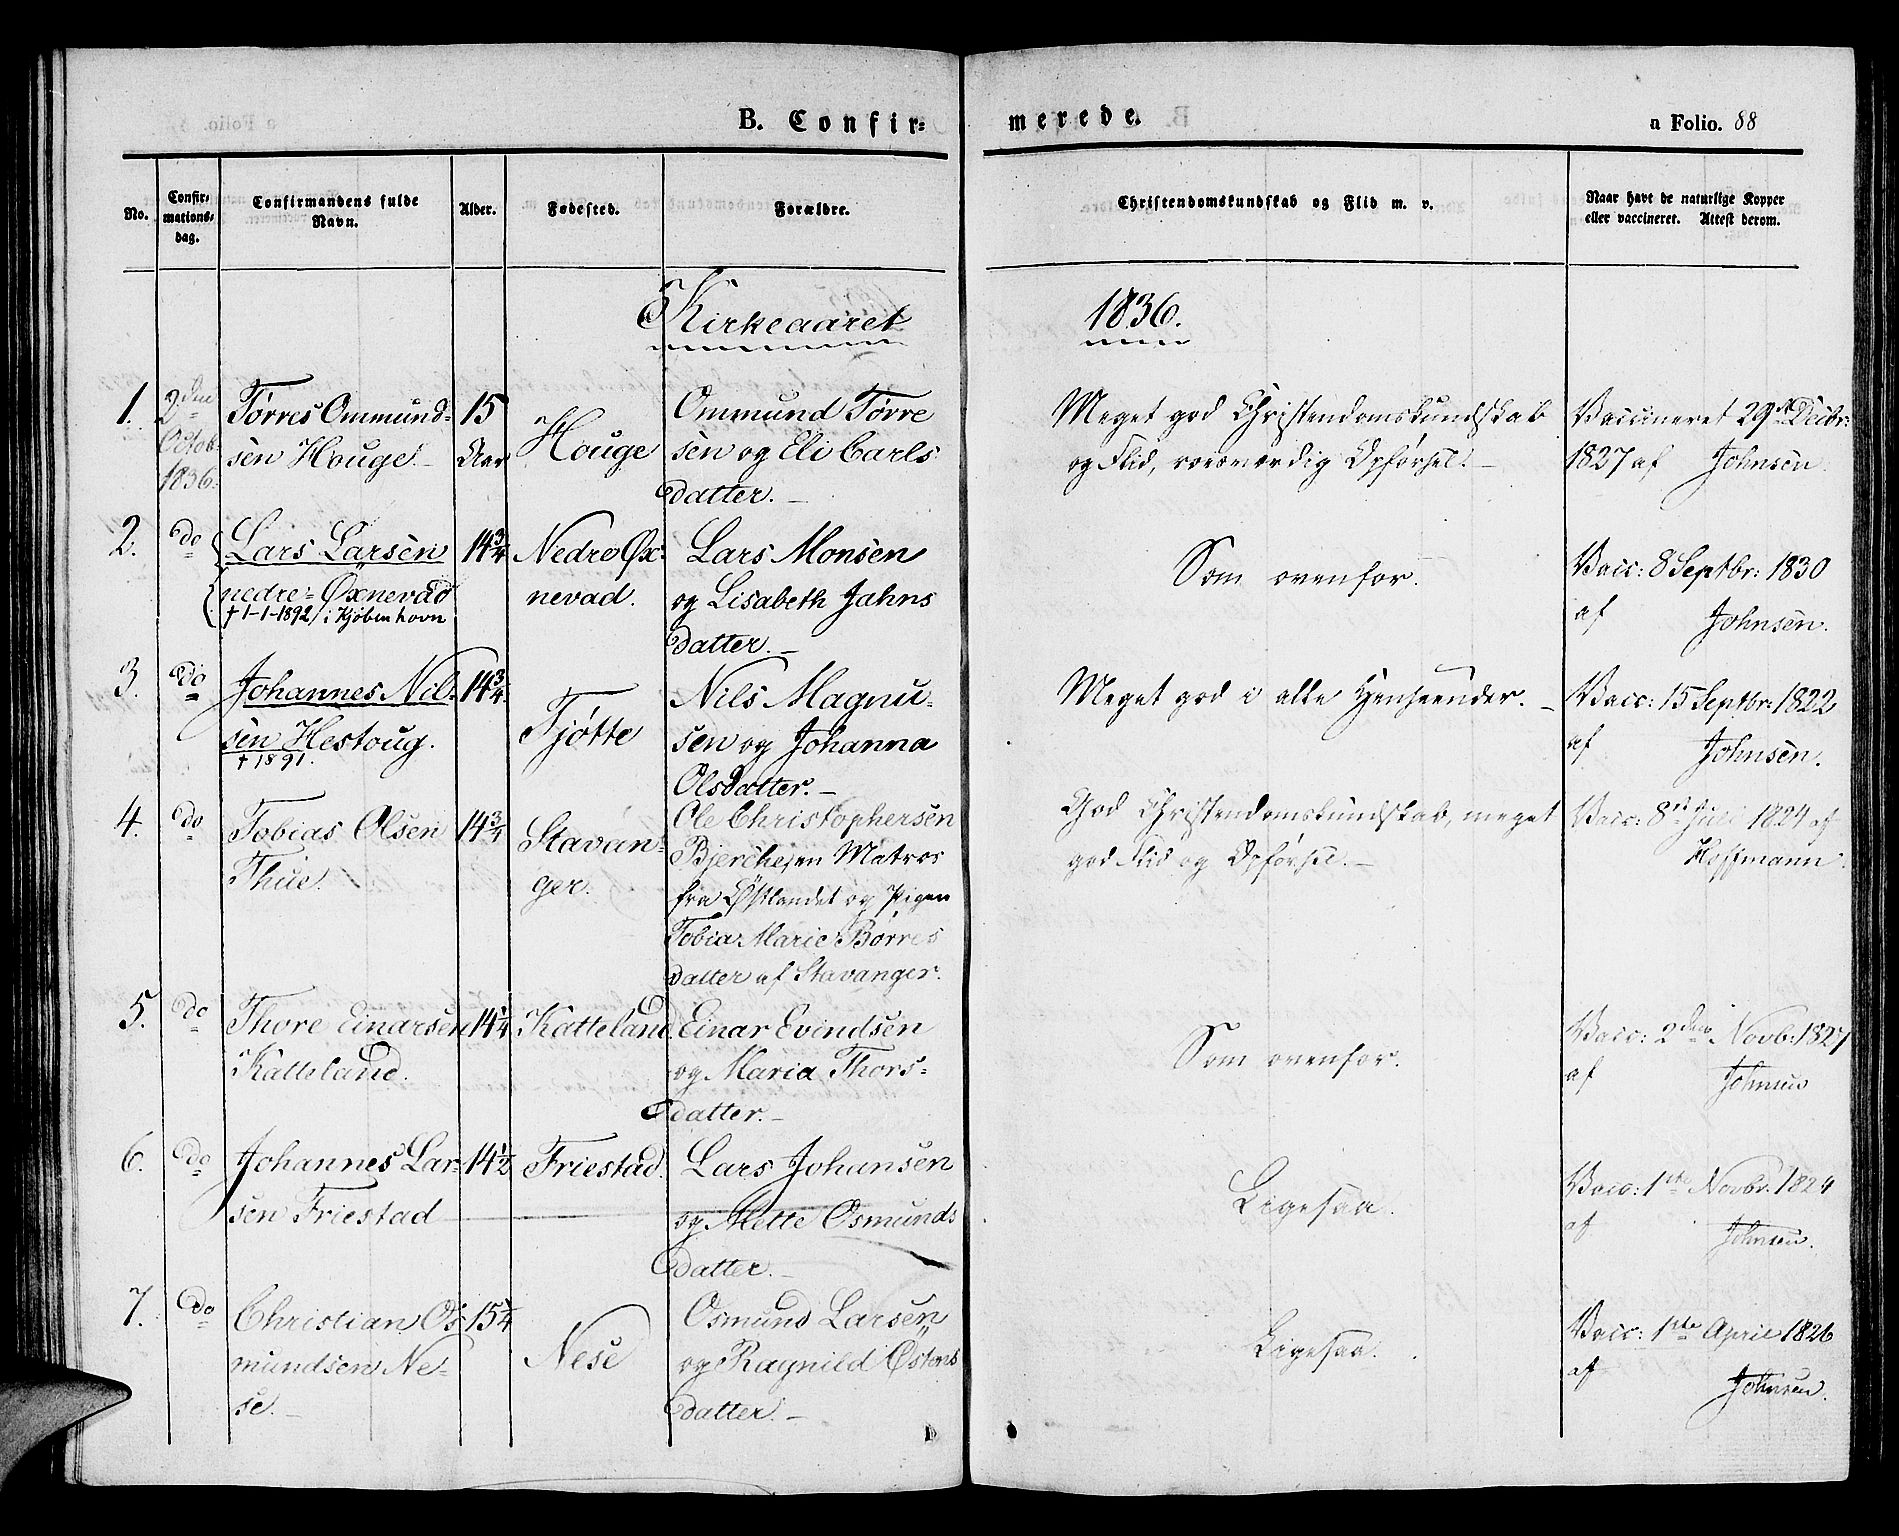 B. Confir=
merede.
a Folio. 88
No.
Confir=
mations=
dag.
Confirmandens fulde
Navn.
Alder.
Fødested.
Forældre.
Christendomskundskab og Flid m. v.
Naar havt de naturlige Kopper
eller vaccineret. Attest derom.
Kirkeaaret
1836.
1.
2den
Octob:
1836.
Tørres Ommund=
sen Houge.
15
Aar
Houge
Ommund Tørre
sen og Eli Carls
datter.
Meget god Christendomskundskab
og Flid, roesværdig Opførsel.
Vaccineret 29de Decbr:
1827 af Johnsen.
2.
do
Lars Larsen
nedre=Øxnevad
† 1-1-1892 / i Kjøbenhavn
14 3/4
Nedre Øx=
nevad.
Lars Monsen
og Lisabeth Jahns
datter.
Som ovenfor.
Vacc: 8 Septbr: 1830
af Johnsen.
3.
do
Johannes Nil=
sen Hestoug.
† 1891.
14 3/4
Tjøtte
Nils Magnu=
sen og Johanna
Olsdatter.
Meget god i alle Henseender.
Vacc: 15 Septbr: 1822
af Johnsen.
4.
do
Tobias Olsen
Thue.
14 3/4
Stavan=
ger.
Ole Christophersen
Bjerche, en Matros
fra Østlandet og Pigen
Tobia Marie Børres
datter af Stavanger.
God Christendomskundskab, meget
god Flid og Opførsel.
Vacc: 8de Juli 1824 af
Hoffmann.
5.
do
Thore Einarsen
Katteland.
14 1/4
Katteland.
Einar Evindsen
og Maria Thors=
datter.
Som ovenfor.
Vacc: 2den Novb: 1827
af Johnsen
6.
do
Johannes Lar=
sen Friestad
14 1/2
Friestad.
Lars Johansen
og Mette Osmunds
datter.
Ligesaa.
Vacc: 1ste Novbr. 1824
af Johnsen.
7.
do
Christian Os=
mundsen Ne=
se.
15 1/4
Nese
Osmund Larsen
og Ragnild Østens
datter.
Ligesaa.
Vacc: 1ste April 1826
af Johnsen.